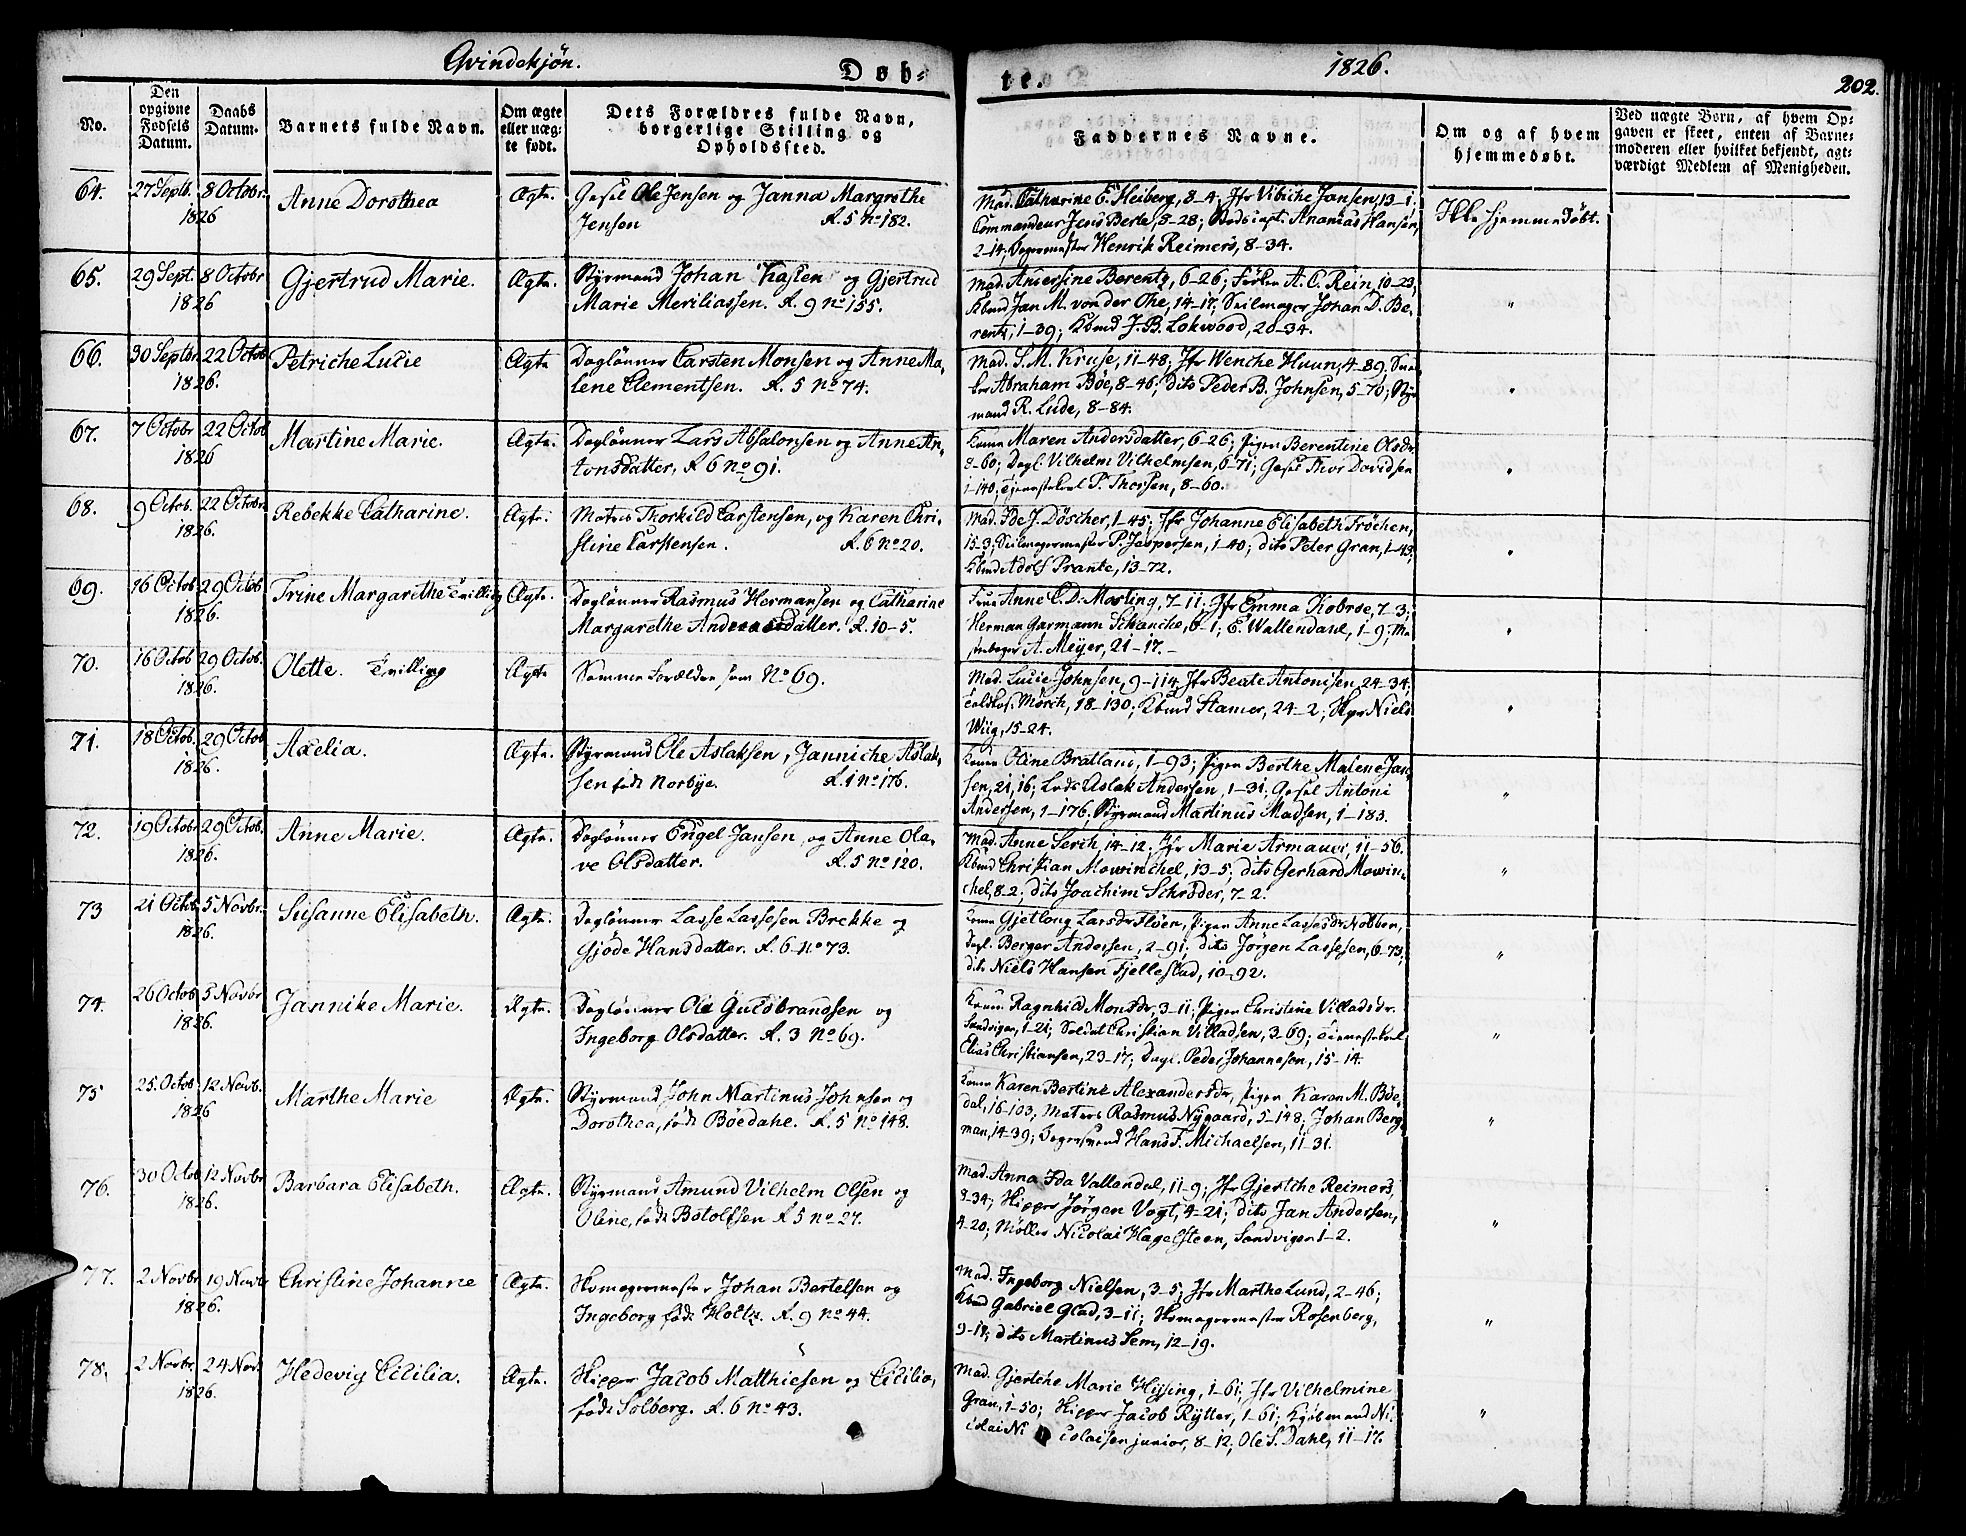 Qvindekjön.
Døb-
te.
1826.
202.
No.
Den opgivne Fødsels Datum.
Daabs Datum.
Barnets fulde Navn.
Om ægte eller uæg-
te født.
Dets Forældres fulde Navn,
borgerlige Stilling og
Opholdssted.
Faddernes Navne.
Om og af hvem
hjemmedøbt.
Ved uægte Børn, af hvem Op-
gaven er skeet, enten af Barne-
moderen eller hvilket bekjendt, agt-
værdigt Medlem af Menigheden.
64. 27 Septb. 1826 8 Octobr. Anne Dorothea Ægte. Gesel Ole Jensen og Janna Margrethe
Jensen R. 5 No 182.
Mad. Catharine E. Heiberg, 8-4; Jfr Vibiche Jansen, 13-1.
Commandeur Jens Berle, 8-28; Ananias Hansen,
2-14; Henrik Reimers, 8-34.
Ikke hjemmedöbt.
65. 29 Sept. 1826 8 Octobr Gjertrud Marie. Ægte. Styrmand Johan Kasten og Gjertrud
Marie Meriliassen. R. 9 No 155.
Mad. Andersine Berentz, 6-26; Fröken A. C. Rein, 10-23,
Kbmd Jan M. von der Ohe, 14-17; Seilmager Johan D. Be-
rentz, 1-39; Kbmd J. B. Lokwood, 20-34.
"
66. 30 Septbr 1826. 22 Octob Petriche Lucie Ægte Daglönner Carsten Monsen og Anne Ma-
lene Clementsen. R. 5 No 74.
Mad. S. M. Kruse, 11-48; Jfr Wenche Huun, 4-89,
Abraham Böe, 8-46; dito Peder B. Johnsen, 5-70; Styr
mand R. Lude, 8-84.
"
67. 7 Octobr 1826 22 Octob Martine Marie. Ægte. Daglönner Lars Absalonsen og Anne An-
tonsdatter, R. 6 No 91.
Kone Maren Andersdatter, 6-26; Pigen Berentine Olsdr
8-60; Dagl. Vilhelm Vilhelmsen, 6-71; Gesel Thor Davidsen
1-140; Tjenestekarl P. Thorsen, 8-60.
"
68. 9 Octob. 1826. 22 Octobr. Rebekke Catharine. Ægte. Matros Thorkild Carstensen, og Karen Chri-
stine Carstensen. R. 6 No 20.
Mad. Ide J. Döscher, 1-45; Jfr Johanne Elisabeth Fröchen,
15-3; Seilmagermester P. Jaspersen, 1-40; dito Peter Gran, 1-43,
Kbmd Adolf Prante, 13-72.
"
69. 16 Octob 1826. 29 Octob Trine Margarethe Tvilling Ægte. Daglönner Rasmus Hermansen og Catharine
Margarethe Andreasdatter. R. 10-5.
Frue Anne C. D. Marting, 7-11; Jfr Emma Kobroe, 7-3;
Herman Garmann Schanche, 6-1; E. Wallendahl, 1-9;
A. Meyer, 21-17.-
"
70. 16 Octob 1826. 29 Octob. Olette. Tvilling Ægte Samme Forældre som No 69.
Mad. Lucie Johnsen, 9-114 Jfr Beate Antonisen, 24-34;
Mörch, 18-130; Kbmd Stamer, 24-2; Skpr Niels
Wiig, 15-24.
"
71. 18 Octob. 1826. 29 Octob Axelia. Ægte. Styrmand Ole Aslaksen, Janniche Aslak-
sen föd Norbye. R. 1 No 176.
Kone Oline Bratland, 1-93; Pigen Berthe Malene Jan
sen, 21, 16; Lods Aslak Andersen, 1-31; Gesel Antoni
Andersen, 1-176, Styrmand Martinus Madsen, 1-183.
"
72. 19 Octobr 1826. 29 Octob. Anne Marie. Ægte. Daglönner Engel Jansen, og Anne Ola-
ve Olsdatter. R. 5 No 120.
Mad. Anne Serch, 14-12. Jfr Marie Armauer, 11-56.
Kbmd Christian Mowinchel, 13-5; dito Gerhard Mowin-
chel, 8-2; dito Joachim Schröder, 7-2.
"
73 21 Octob 1826. 5 Novbr. Susanne Elisabeth. Ægte. Daglönner Lasse Lassesen Brekke og
Gjöde Hansdatter. R. 6 No 73.
Kone Gjetlong Larsdr Floen, Pigen Anne Lassesdr Nobben,
Dagl. Berger Andersen, 2-91; dito Jörgen Lassesen, 6-73,
dito Niels Hansen Fjellestad, 10-92.
"
74. 26 Octob 1826. 5 Novbr Jannike Marie. Ægte. Daglönner Ole Guldbrandsen og
Ingeborg Olsdatter. R. 3 No 69.
Kone Ragnhild Monsdr, 3-11; Pigen Christine Villadsdr.
Sandvigen, 1-21; Soldat Christian Villadsen, 3-69; Tjenestekarl
Elias Christiansen, 23-17; Dagl. Peder Johannesen, 15-14
"
75 25. Octob 1826 12 Novb. Marthe Marie Ægte. Styrmand John Martinus Johnsen og
Dorothea, föd Böedahl. R. 5 No 148.
Kone Karen Bertine Alexandersdr, Pigen Karen M. Böe-
dal, 16-103; Matros Rasmus Nygaard, 5-148, Johan Berg
man, 14-39; Hans F. Michaelsen, 11-31.
"
76. 30 Octob 1826. 12 Novbr Barbara Elisabeth. Ægte. Styrmand Amund Vilhelm Olsen og
Oline, föd Botolfsen R. 5 No 27.
Mad. Anna Ida Vallendal, 11-9; Jfr Gjertche Reimers,
8-34; Skipper Jörgen Vogt, 4-21; dito Jan Andersen,
4-20, Möller Nicolai Hagelsteen, Sandvigen 1-2.
"
77. 2 Novbr 1826. 19 Novbr Christine Johanne Ægte. Skomagermester Johan Bertelsen og
Ingeborg föd Holtz. R. 9 No 44.
Mad. Ingeborg Nielsen, 3-5; Jfr Marthe Lund, 2-46;
Kbmd Gabriel Glad, 3-11; Skomagermester Rosenberg,
9-18; dito Martinus Sem, 12-19.
"
78. 2 Novbr. 1826. 24 Nov. Hedevig Cicilia. Ægte. Skipper Jacob Matthiesen og Cicilia,
föd Solberg. R. 6 No 43.
Mad. Gjertche Marie Hissing, 1-61; Jfr Vilhelmine
Gran, 1-50; Skipper Jacob Rytter, 1-61; Kjöbmand Ni-
colai Nicolaisen junior, 8-12, Ole S. Dahl, 11-17.
"